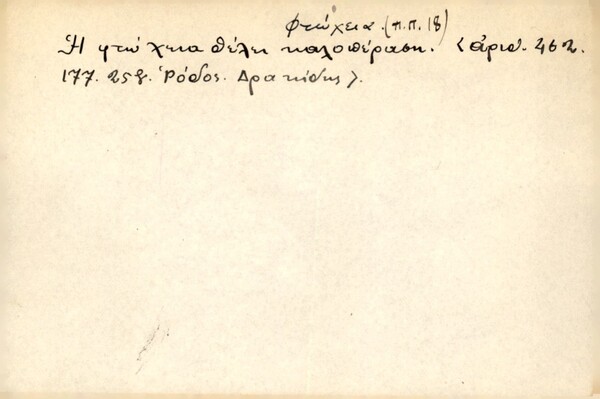 φτώχεια. (π.π. 18)
Ἡ φτώχεια θέλει καλοπέραση. <ἀριθ. 462.
177. 258. Ῥόδος. Δρακίδης>.